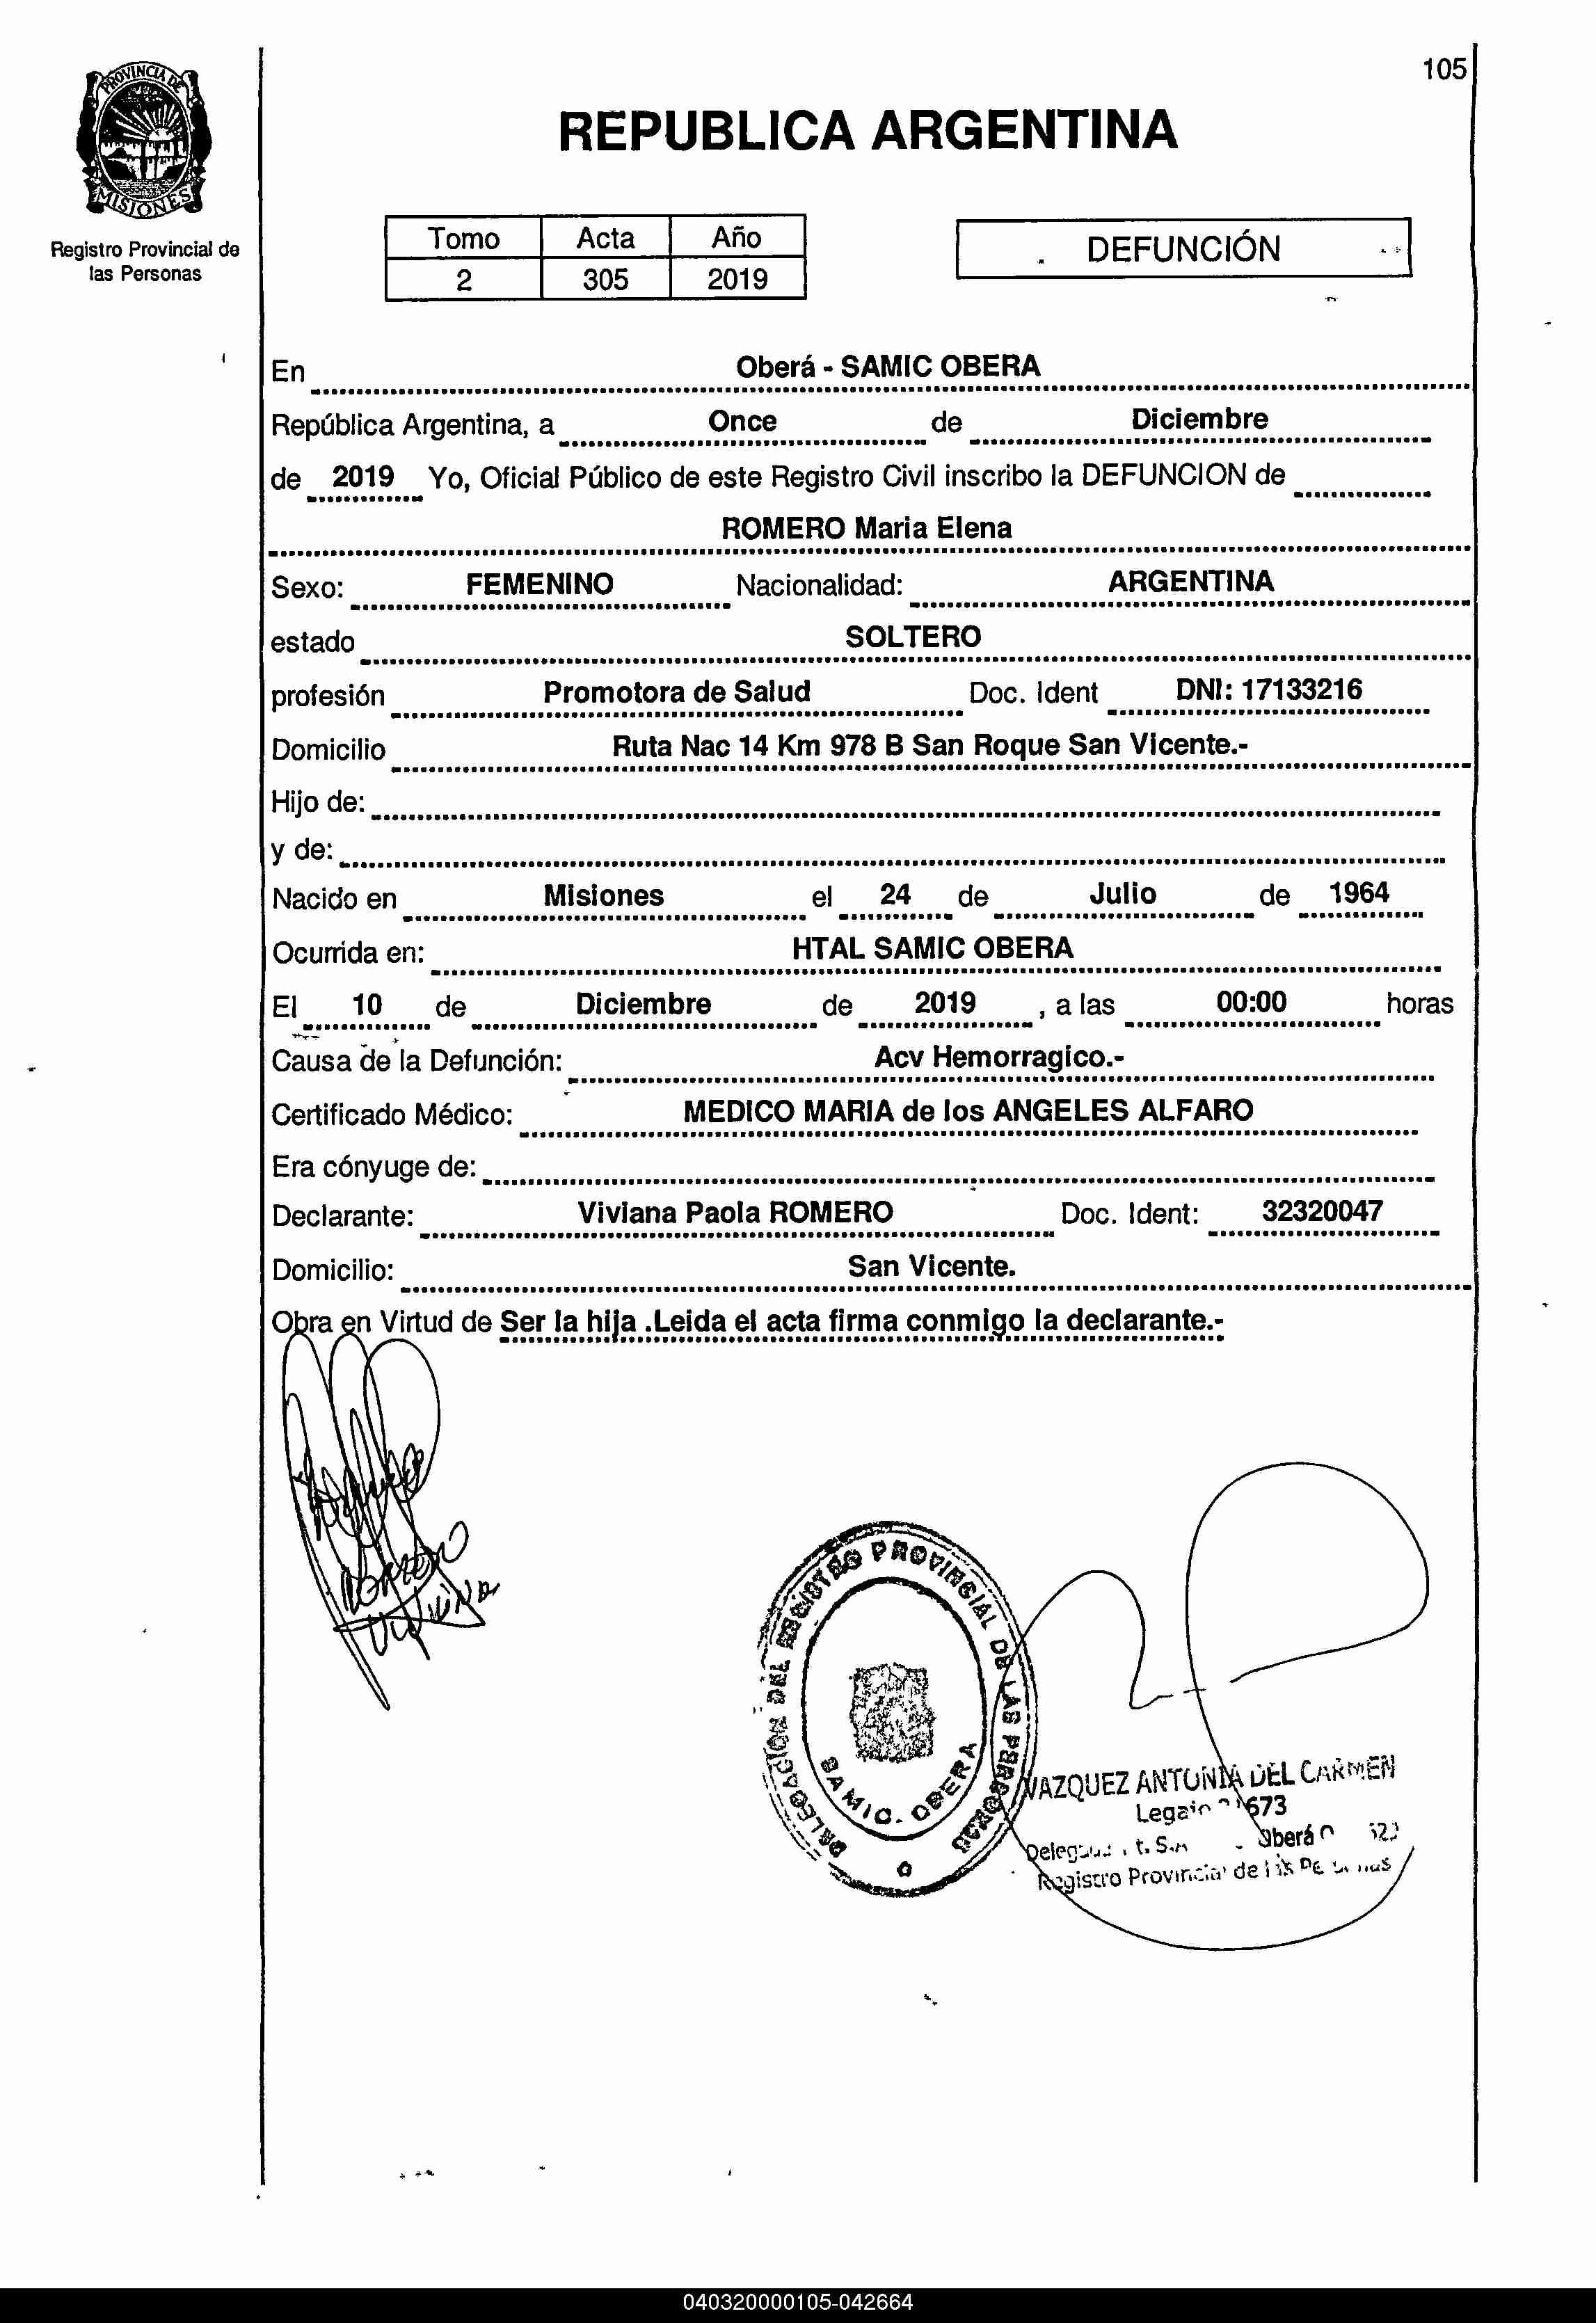 105
PROVINCIA DE
MISIONES
Registro Provincial de
las Personas
REPUBLICA ARGENTINA
Tomo Acta Año
2 305 2019
DEFUNCIÓN
En Oberá - SAMIC OBERA
República Argentina, a Once de Diciembre
de 2019 Yo, Oficial Público de este Registro Civil inscribo la DEFUNCION de
ROMERO Maria Elena
Sexo: FEMENINO Nacionalidad: ARGENTINA
estado SOLTERO
profesión Promotora de Salud Doc. Ident DNI: 17133216
Domicilio Ruta Nac 14 Km 978 B San Roque San Vicente.-
Hijo de:
y de:
Nacido en Misiones el 24 de Julio de 1964
Ocurrida en: HTAL SAMIC OBERA
El 10 de Diciembre de 2019 , a las 00:00 horas
Causa de la Defunción: Acv Hemorragico.-
Certificado Médico: MEDICO MARIA de los ANGELES ALFARO
Era cónyuge de:
Declarante: Viviana Paola ROMERO Doc. Ident: 32320047
Domicilio: San Vicente.
Obra en Virtud de Ser la hija .Leida el acta firma conmigo la declarante.-
DELEGACION DEL REGISTRO PROVINCIAL DE LAS PERSONAS
SAMIC. OBERA
VAZQUEZ ANTONIA DEL CARMEN
Oberá
Registro Provincial de
040320000105-042664